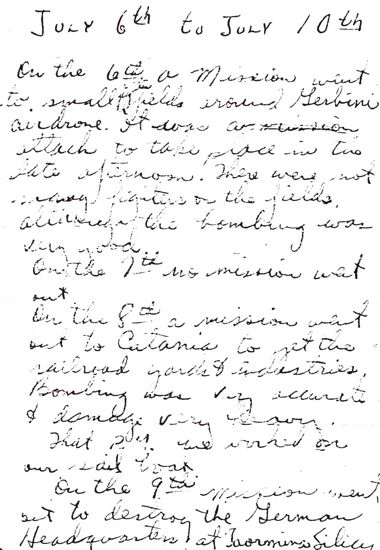 July 6th to July 10th
On the 6th a Mission went
to small fields around Gerbini
airdrone. It was a mission
attack to take place in the
late afternoon. There were not
many fighters on the fields,
although the bombing was
very good.
On the 7th no mission went
out
On the 8th a mission went
out to Catania to get the
railroad yards & industries.
Bombing was very accurate
& damage very heavy.
That we worked on
our sail boat
On the 9th mission went
out to destroy the German
Headquarters at Taormina Sicily